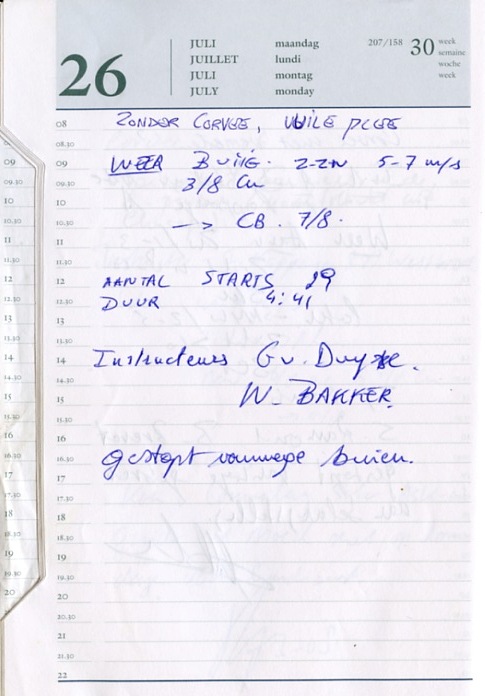 26
JULI maandag
JUILLET lundi
JULI montag
JULY monday
207/158 30 week
semaine
woche
week
08 ZONDER CORVEE, VUILE PLEE
08.30
09 WEER BUIIG. Z-ZW 5-7 m/s
09.30 3/8 Cu
10
10.30 → CB. 7/8.
11
11.30
12 AANTAL STARTS 29
12.30 DUUR 4:41
13
13.30
14 Instructeurs G v. Duyze.
14.30
15 W. BAKKER.
15.30
16
16.30 gestopt vanwege buien.
17
17.30
18
18.30
19
19.30
20
20.30
21
21.30
22
09
09.30
10
10.30
11
11.30
12
12.30
13
13.30
14
14.30
15
15.30
16
16.30
17
17.30
18
18.30
19
19.30
20